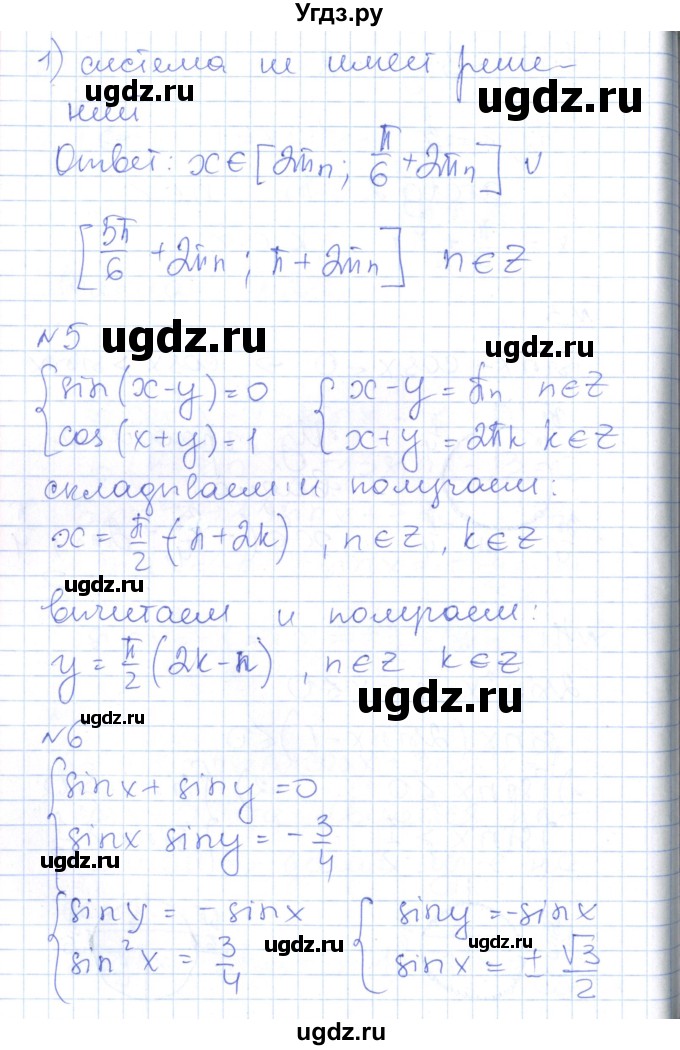 Угдз.ру
1) система не имеет реше-
ugdz.ru
ugdz.ru
ний
Ответ: x ∈ [2πn; π/6 + 2πn] ∪
[5π/6 + 2πn; π + 2πn] n ∈ Z
№5
ugdz.ru
ugdz.ru
{ sin(x-y)=0 { x-y = πn n∈Z
{ cos(x+y)=1 { x+y = 2πk k∈Z
складываем и получаем:
x = π/2 (n+2k), n∈Z, k∈Z
ugdz.ru
вычитаем и получаем:
y = π/2 (2k-n), n∈Z k∈Z
ugdz.ru
ugdz.ru
№6
{ sinx + siny = 0
{ sinx siny = -3/4
ugdz.ru
{ siny = -sinx { siny = -sinx
{ sin²x = 3/4 { sinx = ± √3/2
ugdz.ru
ugdz.ru
ugdz.ru